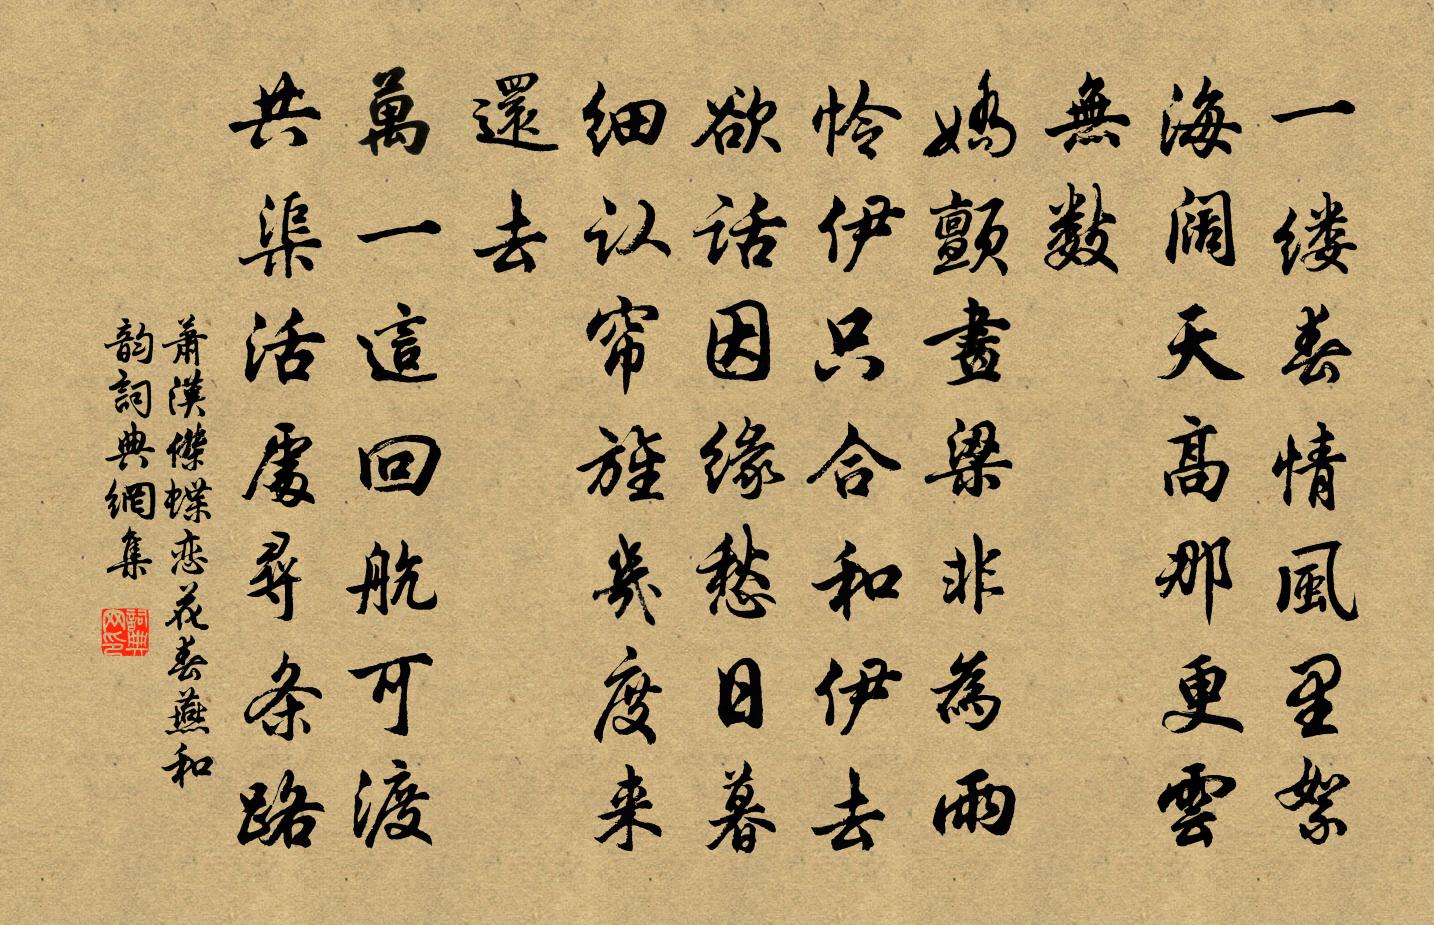 一缕春情風里絮
海阔天高那更雲
無數
嬌顫畫梁非為雨
怜伊只合和伊去
欲话因缘愁日暮
细认帘旌幾度来
還去
萬一這回航可渡
共渠活處尋条路
蕭漢傑蝶恋花春燕和
韵詞典網集
詞典网印